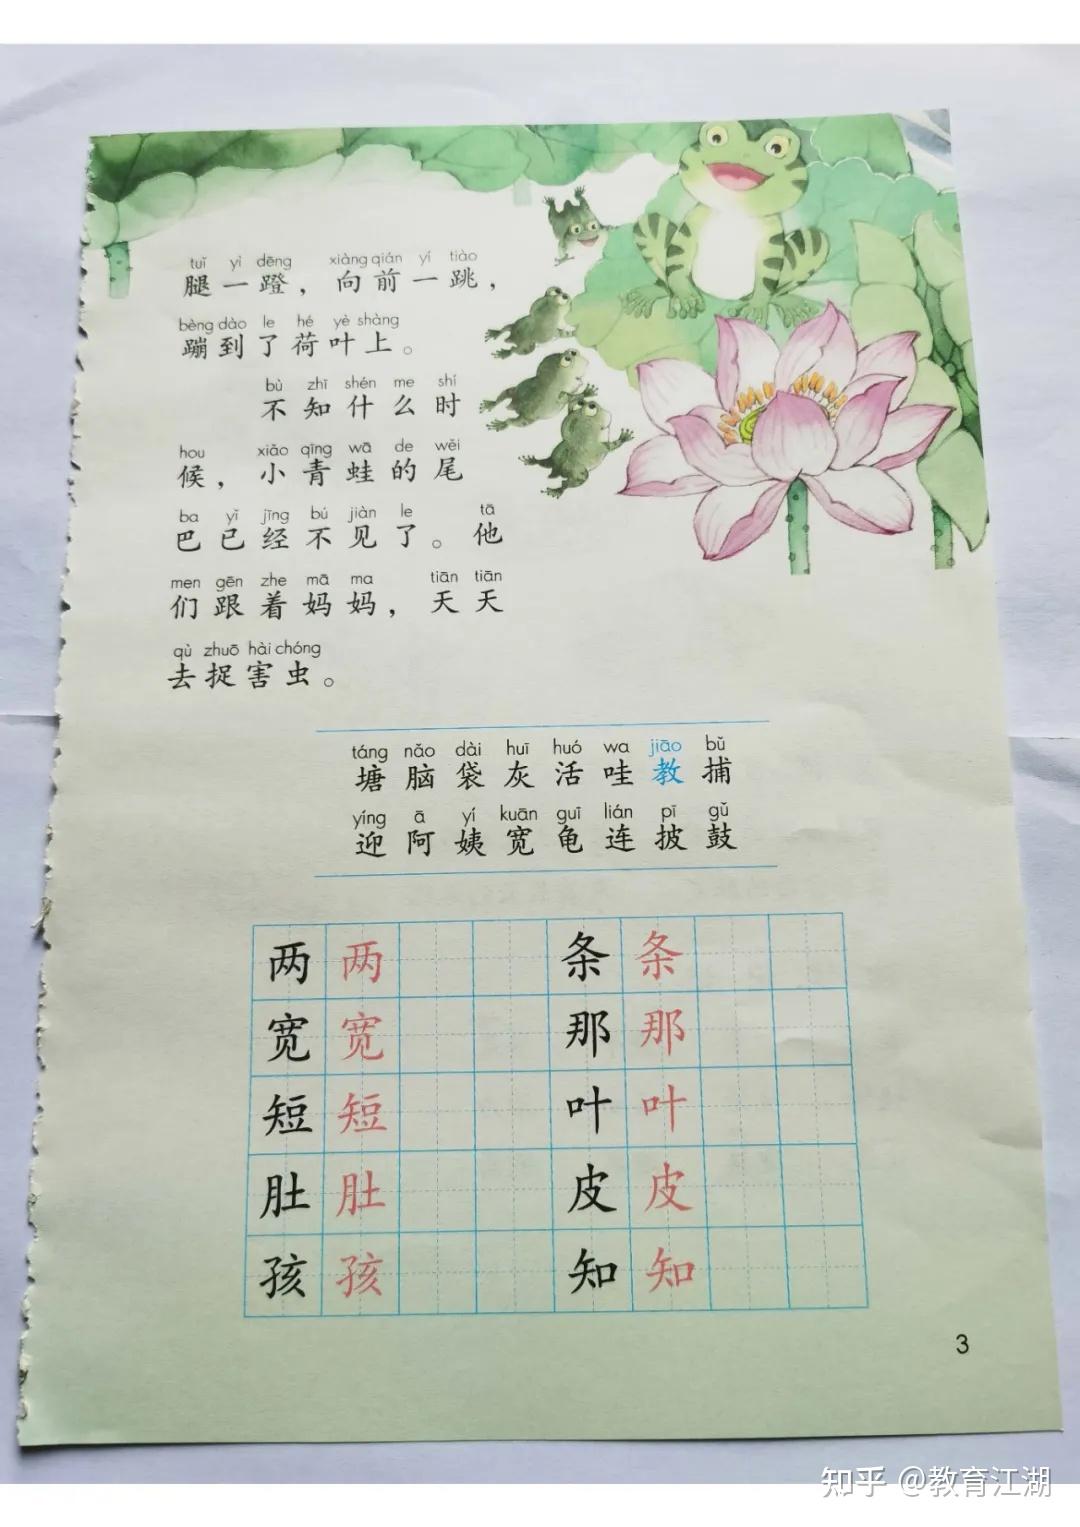 tuǐ yì dēng xiàng qián yí tiào
腿一蹬，向前一跳，
bèng dào le hé yè shàng
蹦到了荷叶上。
bù zhī shén me shí
不知什么时
hou xiǎo qīng wā de wěi
候，小青蛙的尾
ba yǐ jīng bú jiàn le tā
巴已经不见了。他
men gēn zhe mā ma tiān tiān
们跟着妈妈，天天
qù zhuō hài chóng
去捉害虫。
táng nǎo dài huī huó wa jiāo bǔ
塘脑袋灰活哇教捕
yíng ā yí kuān guī lián pī gǔ
迎阿姨宽龟连披鼓
两 两 条 条
宽 宽 那 那
短 短 叶 叶
肚 肚 皮 皮
孩 孩 知 知
3
知乎 @教育江湖